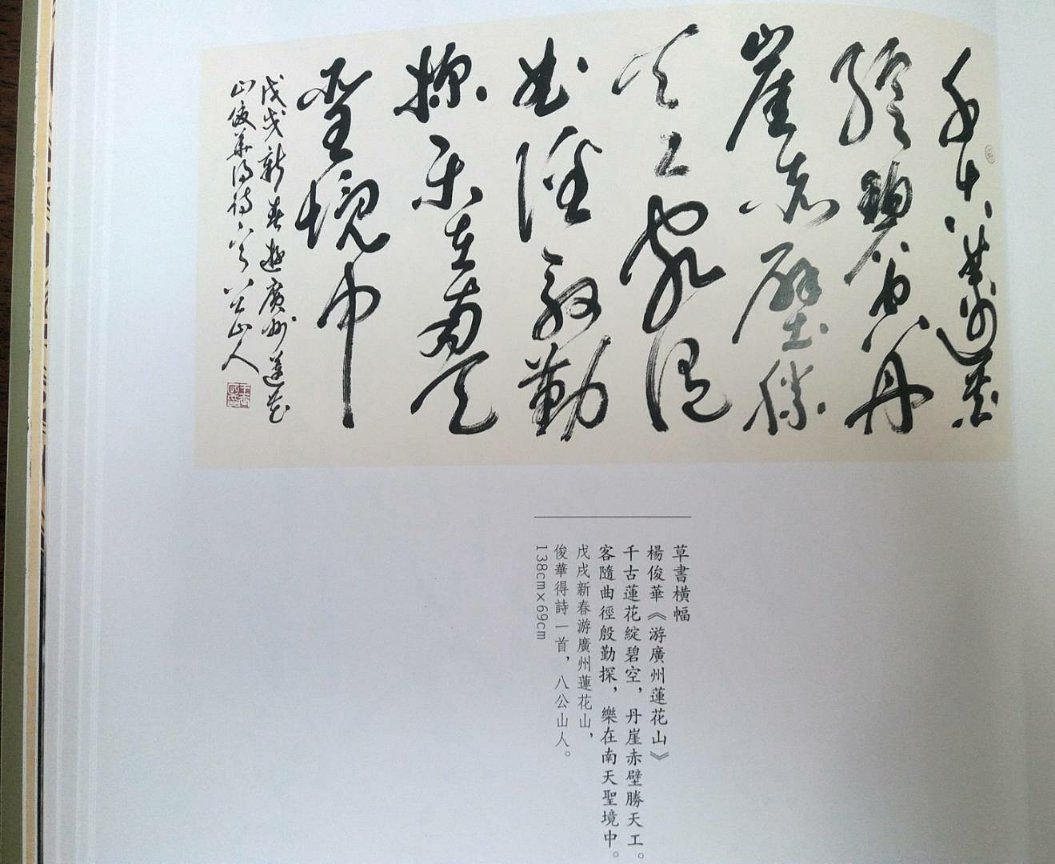 千古蓮花
綻碧空丹
崖赤壁勝
天工客隨
曲徑殷勤
探樂在南天
聖境中
戊戌新春遊廣州蓮花
山俊華得詩一首八公山人
草書橫幅
楊俊華《游廣州蓮花山》
千古蓮花綻碧空，丹崖赤壁勝天工。
客隨曲徑殷勤探，樂在南天聖境中。
戊戌新春游廣州蓮花山，
俊華得詩一首，八公山人。
138cm×69cm